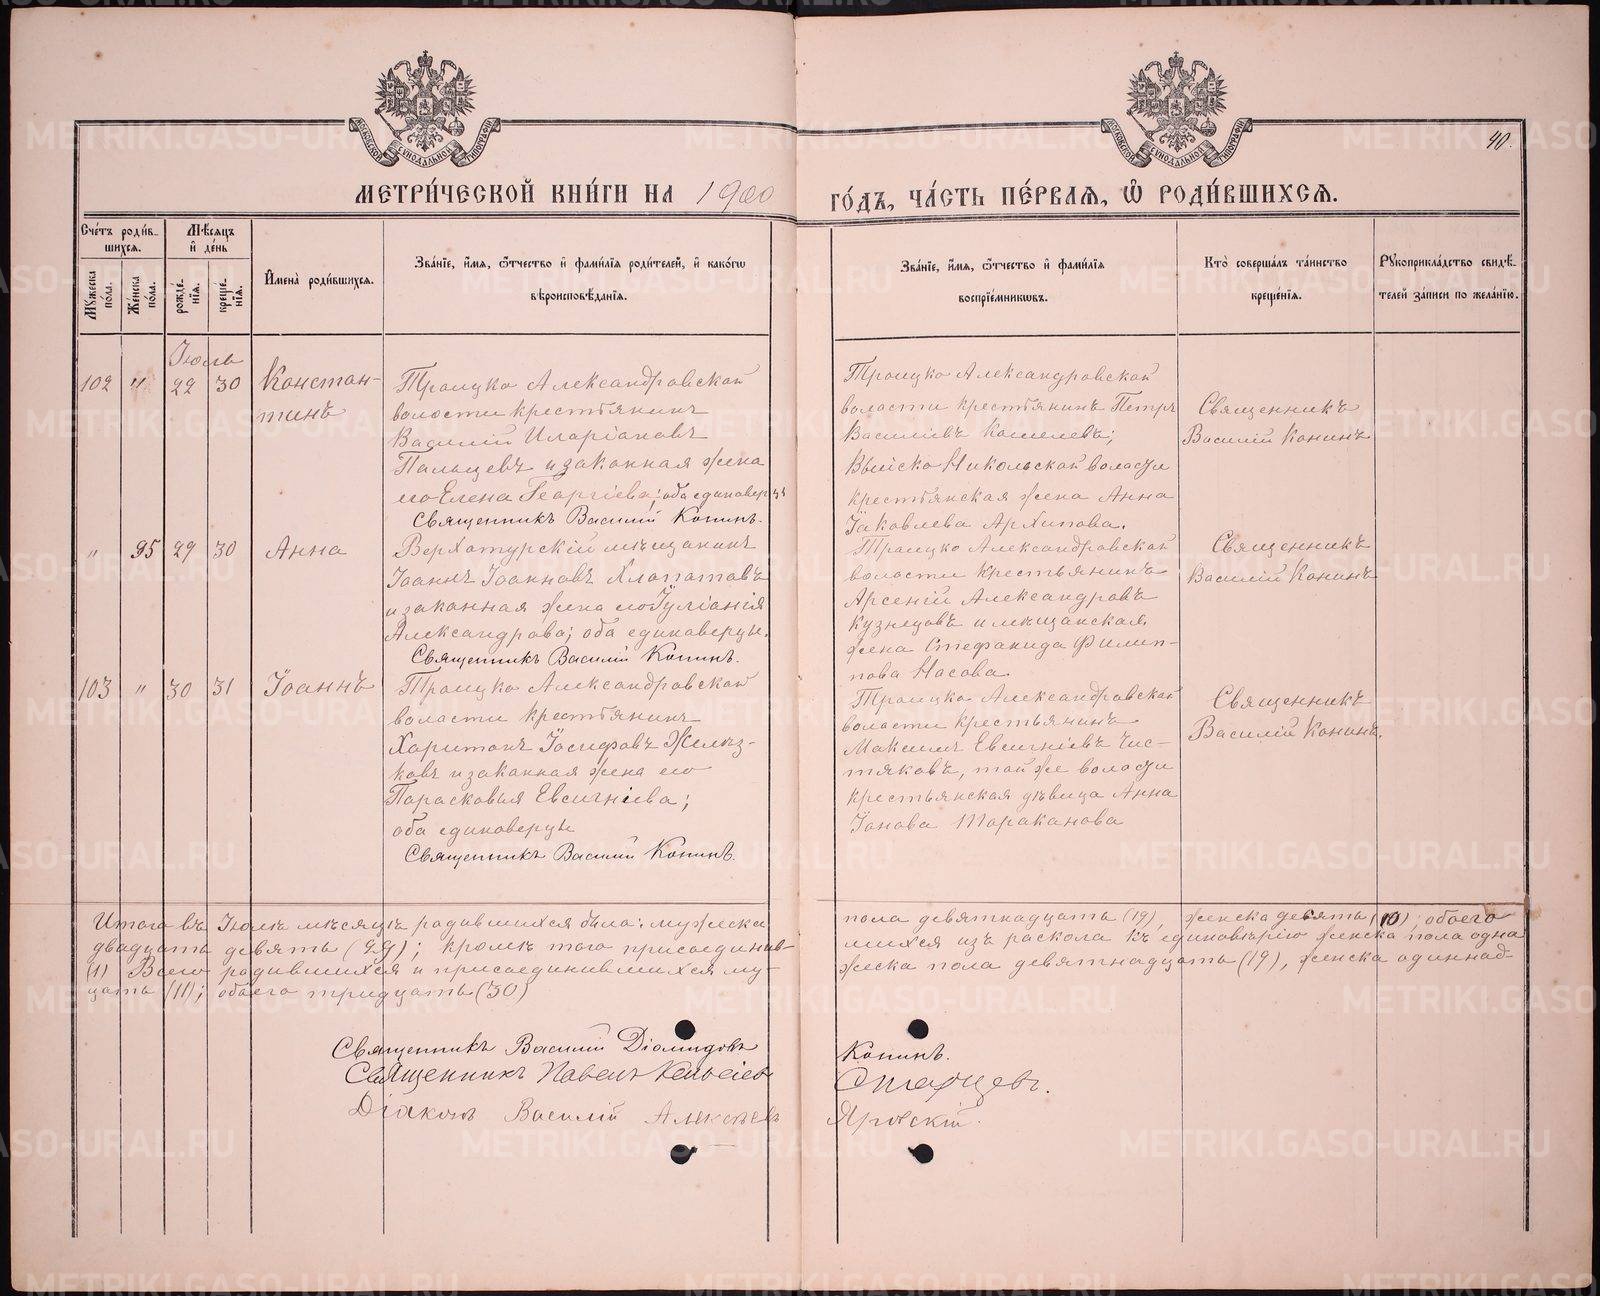 МОСКОВСКОЙ СУНОДАЛЬНОЙ ТИПОГРАФІИ
МОСКОВСКОЙ СУНОДАЛЬНОЙ ТИПОГРАФІИ
40.
МЕТРИ́ЧЕСКОЙ КНИ́ГИ НА 1900 ГО́ДЪ, ЧА́СТЬ ПЕ́РВАѦ, Ѡ҆ РОДИ́ВШИХСѦ.
Сче́тъ роди́в-
шихсѧ.
Мѣ́сѧцъ
и҆ де́нь
Мꙋ́жеска пола.
Же́нска пола.
рожде́-
нїѧ.
креще́-
нїѧ.
И҆мена̀ роди́вшихсѧ.
Зва́нїе, и҆́мѧ, ѻ҆́тчество и҆ фамı́лїѧ роди́телей, и҆ како́гѡ
вѣроисповѣ́данїѧ.
Зва́нїе, и҆́мѧ, ѻ҆́тчество и҆ фамı́лїѧ
воспрїе́мникѡвъ.
Кто̀ соверша́лъ та́инство
креще́нїѧ.
Рꙋкоприкла́дство свидѣ́-
телей за́писи по жела́нїю.
Іюль
102 " 22 30 Констан-
тинъ
Троицко Александровской
волости крестьянинъ
Василій Иларіоновъ
Пальцевъ и законная жена
его Елена Георгіева; оба единоверцы
Священникъ Василій Конинъ.
Троицко Александровской
волости крестьянинъ Петръ
Василіевъ Кошелевъ;
Выйско Никольской волости
крестьянская жена Анна
Іаковлева Архипова.
Священникъ
Василій Конинъ
" 95 29 30 Анна
Верхотурскій мѣщанинъ
Іоаннъ Іоанновъ Хлопотовъ
и законная жена его Іуліанія
Александрова; оба единоверцы.
Священникъ Василій Конинъ.
Троицко Александровской
волости крестьянинъ
Арсеній Александровъ
Кузнецовъ и мѣщанская
жена Стефанида Филип-
пова Носова.
Священникъ
Василій Конинъ
103 " 30 31 Іоаннъ
Троицко Александровской
волости крестьянинъ
Харитонъ Іосифовъ Желѣз-
ковъ и законная жена его
Парасковья Евсигніева;
оба единоверцы
Священникъ Василій Конинъ.
Троицко Александровской
волости крестьянинъ
Максимъ Евсигніевъ Чис-
тяковъ, той же волости
крестьянская дѣвица Анна
Іонова Тараканова
Священникъ
Василій Конинъ.
Итого въ Іюлѣ мѣсяцѣ родившихся было: мужеска пола девятнадцать (19), женска девять (10); обоего
двадцать девять (29); кромѣ того присоединив- шихся изъ раскола къ единовѣрію женска пола одна
(1) Всего родившихся и присоединившихся му- жеска пола девятнадцать (19), женска одиннад-
цать (11); обоего тридцать (30)
Священникъ Василій Діомидовъ Конинъ.
Священникъ Павелъ Старцевъ.
Діаконъ Василій Алексѣевъ Яровскій.
METRIKI.GASO-URAL.RU